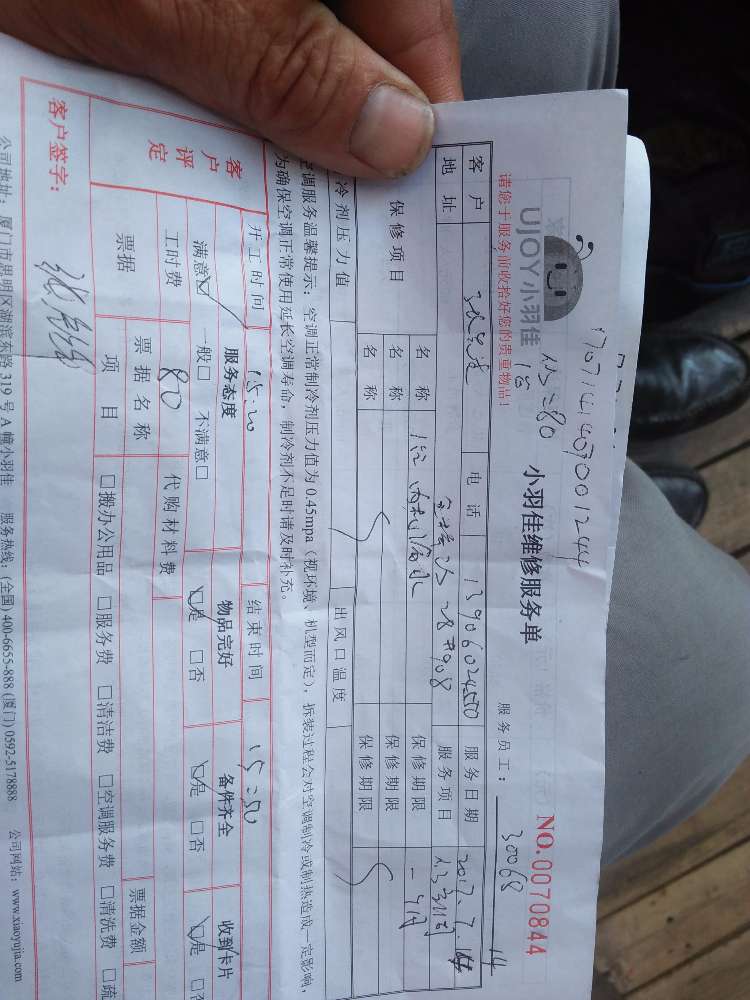 17071414030001244
UJOY小羽佳
请您于服务前收拾好您的贵重物品!
小羽佳维修服务单
NO.0070844
服务员工: 30068
客户
电话 13906024550
服务日期 2017.7.14
地址
28#908
服务项目
保修项目
名称
保修期限 一个月
名称
保修期限
名称
保修期限
制冷剂压力值
出风口温度
空调服务温馨提示:空调正常制冷剂压力值为0.45mpa(视环境、机型而定),拆装过程会对空调制冷或制热造成一定影响,
为确保空调正常使用延长空调寿命,制冷剂不足时请及时补充。
客户评定
开工时间 15:20
结束时间 15:50
服务态度
物品完好
备件齐全
收到卡片
满意☑ 一般□ 不满意□
☑是 □否
☑是 □否
☑是
工时费 80
代购材料费
票据
票据名称
票据金额
项目
□搬办公用品 □服务费 □清洁费 □空调服务费 □清洗费 □疏
客户签字:
公司地址:厦门市思明区湖滨东路319号A幢小羽佳 服务热线:(全国)400-6655-888 (厦门)0592-5178888 公司网站:www.xiaoyujia.com